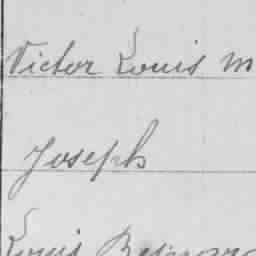 Victor Louis M
Joseph
Louis